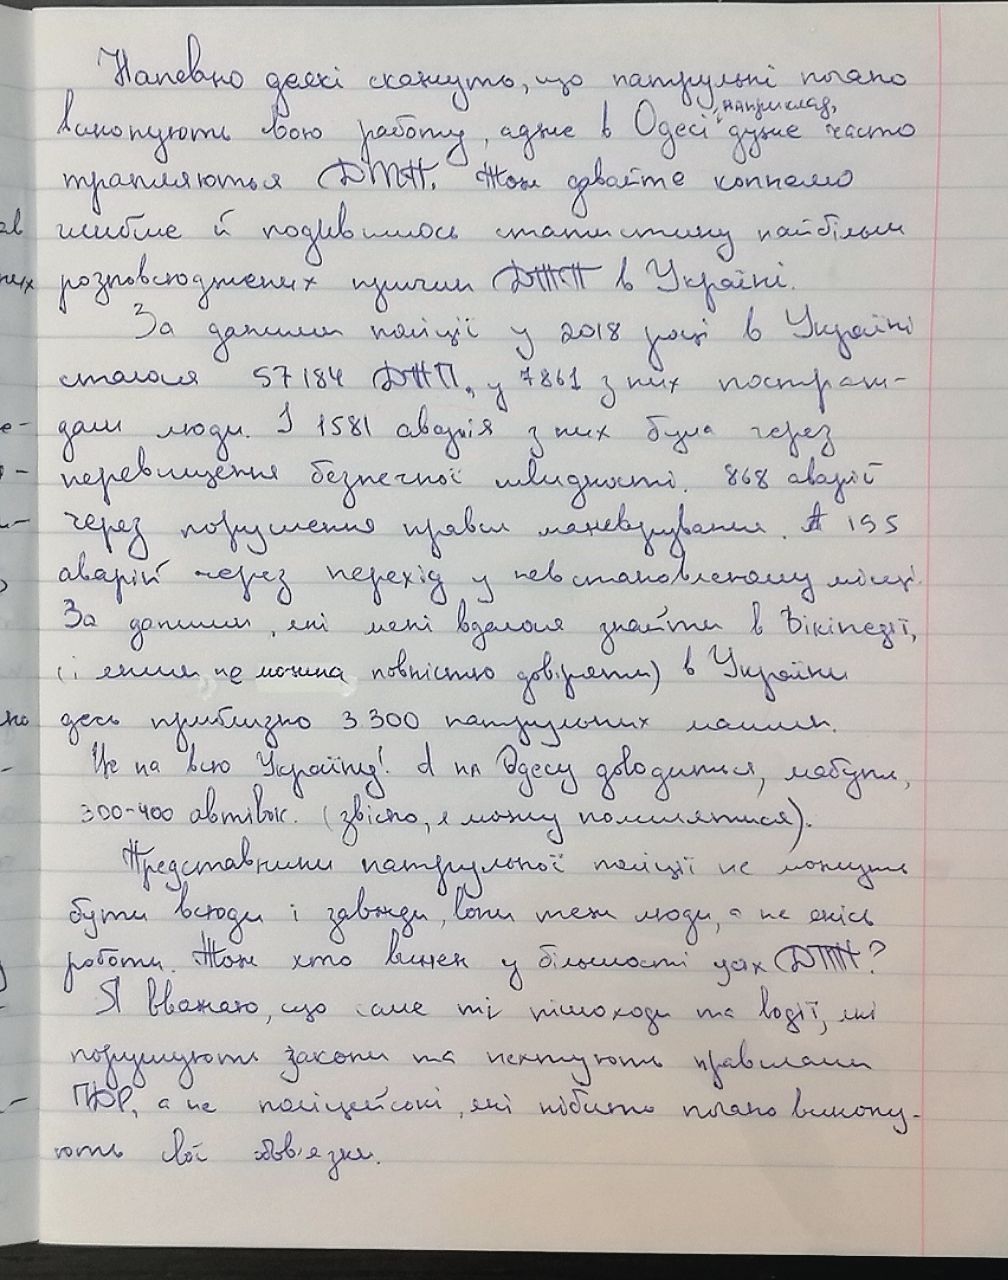 Напевно деякі скажуть, що патрульні погано
виконують свою работу, адже в Одесі, наприклад, дуже часто
трапляються ДТП. Тож давайте копнемо
глибше й подивимось статистику найбільш
розповсюджених причин ДТП в Україні.
За даними поліції у 2018 році в Україні
сталося 57184 ДТП, у 7861 з них постраж-
дали люди. І 1581 аварія з них була через
перевищення безпечної швидкості. 868 аварій
через порушення правил маневрування. А 195
аварій через перехід у невстановленому місці.
За даними, які мені вдалося знайти в Вікіпедії,
(і яким не можна повністю довіряти) в Україні
десь приблизно 3.300 патрульних машин.
Це на всю Україну! А на Одесу доводиться, мабуть,
300-400 автівок. (звісно, я можу помилятися).
Представники патрульної поліції не можуть
бути всюди і завжди, вони теж люди, а не якісь
роботи. Тож хто винен у більшості цих ДТП?
Я вважаю, що саме ті пішоходи та водії, які
порушують закони та нехтують правилами
ПДР, а не поліцейські, які нібито погано викону-
ють свої обов'язки.
ав
них
е-